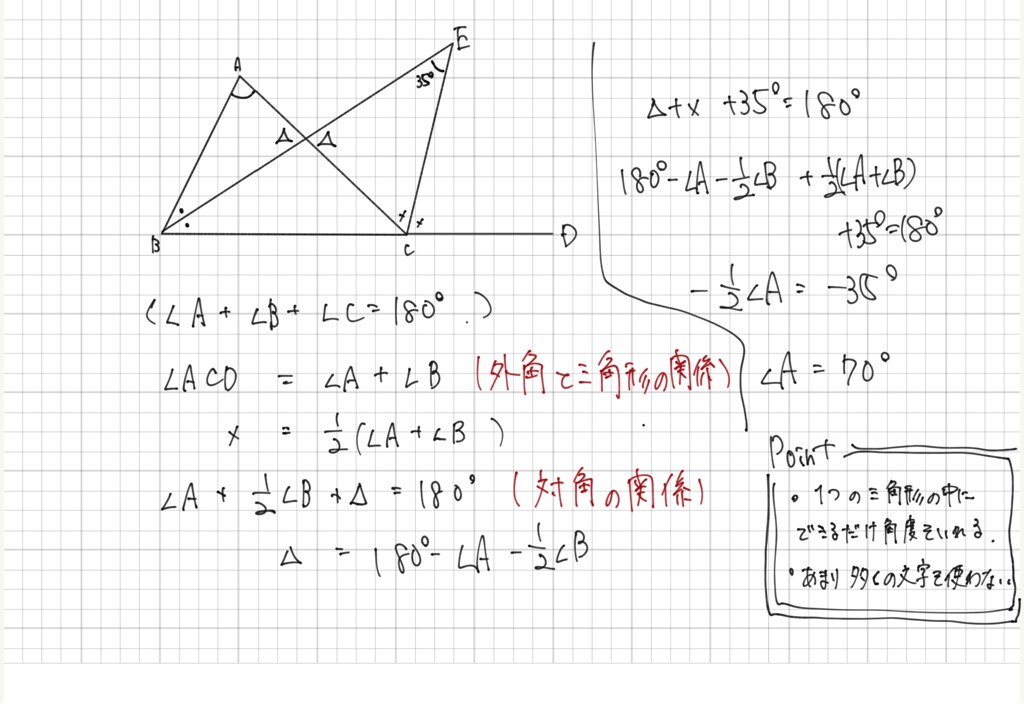 A
E
35°
Δ Δ
× ×
B
C
D
(∠A + ∠B + ∠C = 180°.)
∠ACD = ∠A + ∠B (外角と三角形の関係)
x = 1/2 (∠A + ∠B)
∠A + 1/2 ∠B + Δ = 180° (対角の関係)
Δ = 180° - ∠A - 1/2 ∠B
Δ + x + 35° = 180°
180° - ∠A - 1/2 ∠B + 1/2 (∠A + ∠B)
+ 35° = 180°
- 1/2 ∠A = -35°
∠A = 70°
Point
・1つの三角形の中に
できるだけ角度をいれる.
・あまり多くの文字を使わない.